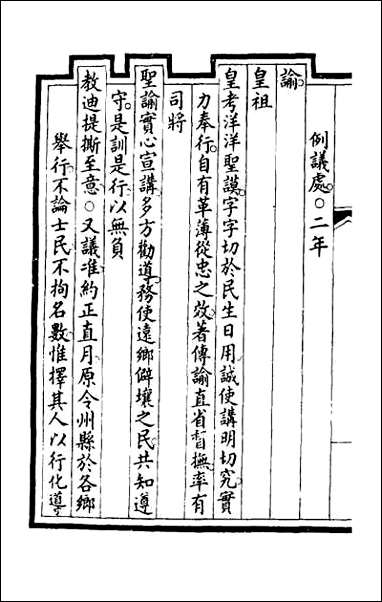 例議處。○二年
諭。
皇祖
皇考洋洋聖謨。字字切於民生日用。誠使講明切究。實
力奉行。自有革薄從忠之效。著傳諭直省督撫。率有
司將
聖諭實心宣講。多方勸導。務使遠鄉僻壤之民。共知遵
守。是訓是行。以無負
教迪提撕至意。○又議准約正直月。原令州縣於各鄉
舉行。不論士民。不拘名數。惟擇其人以行化導。